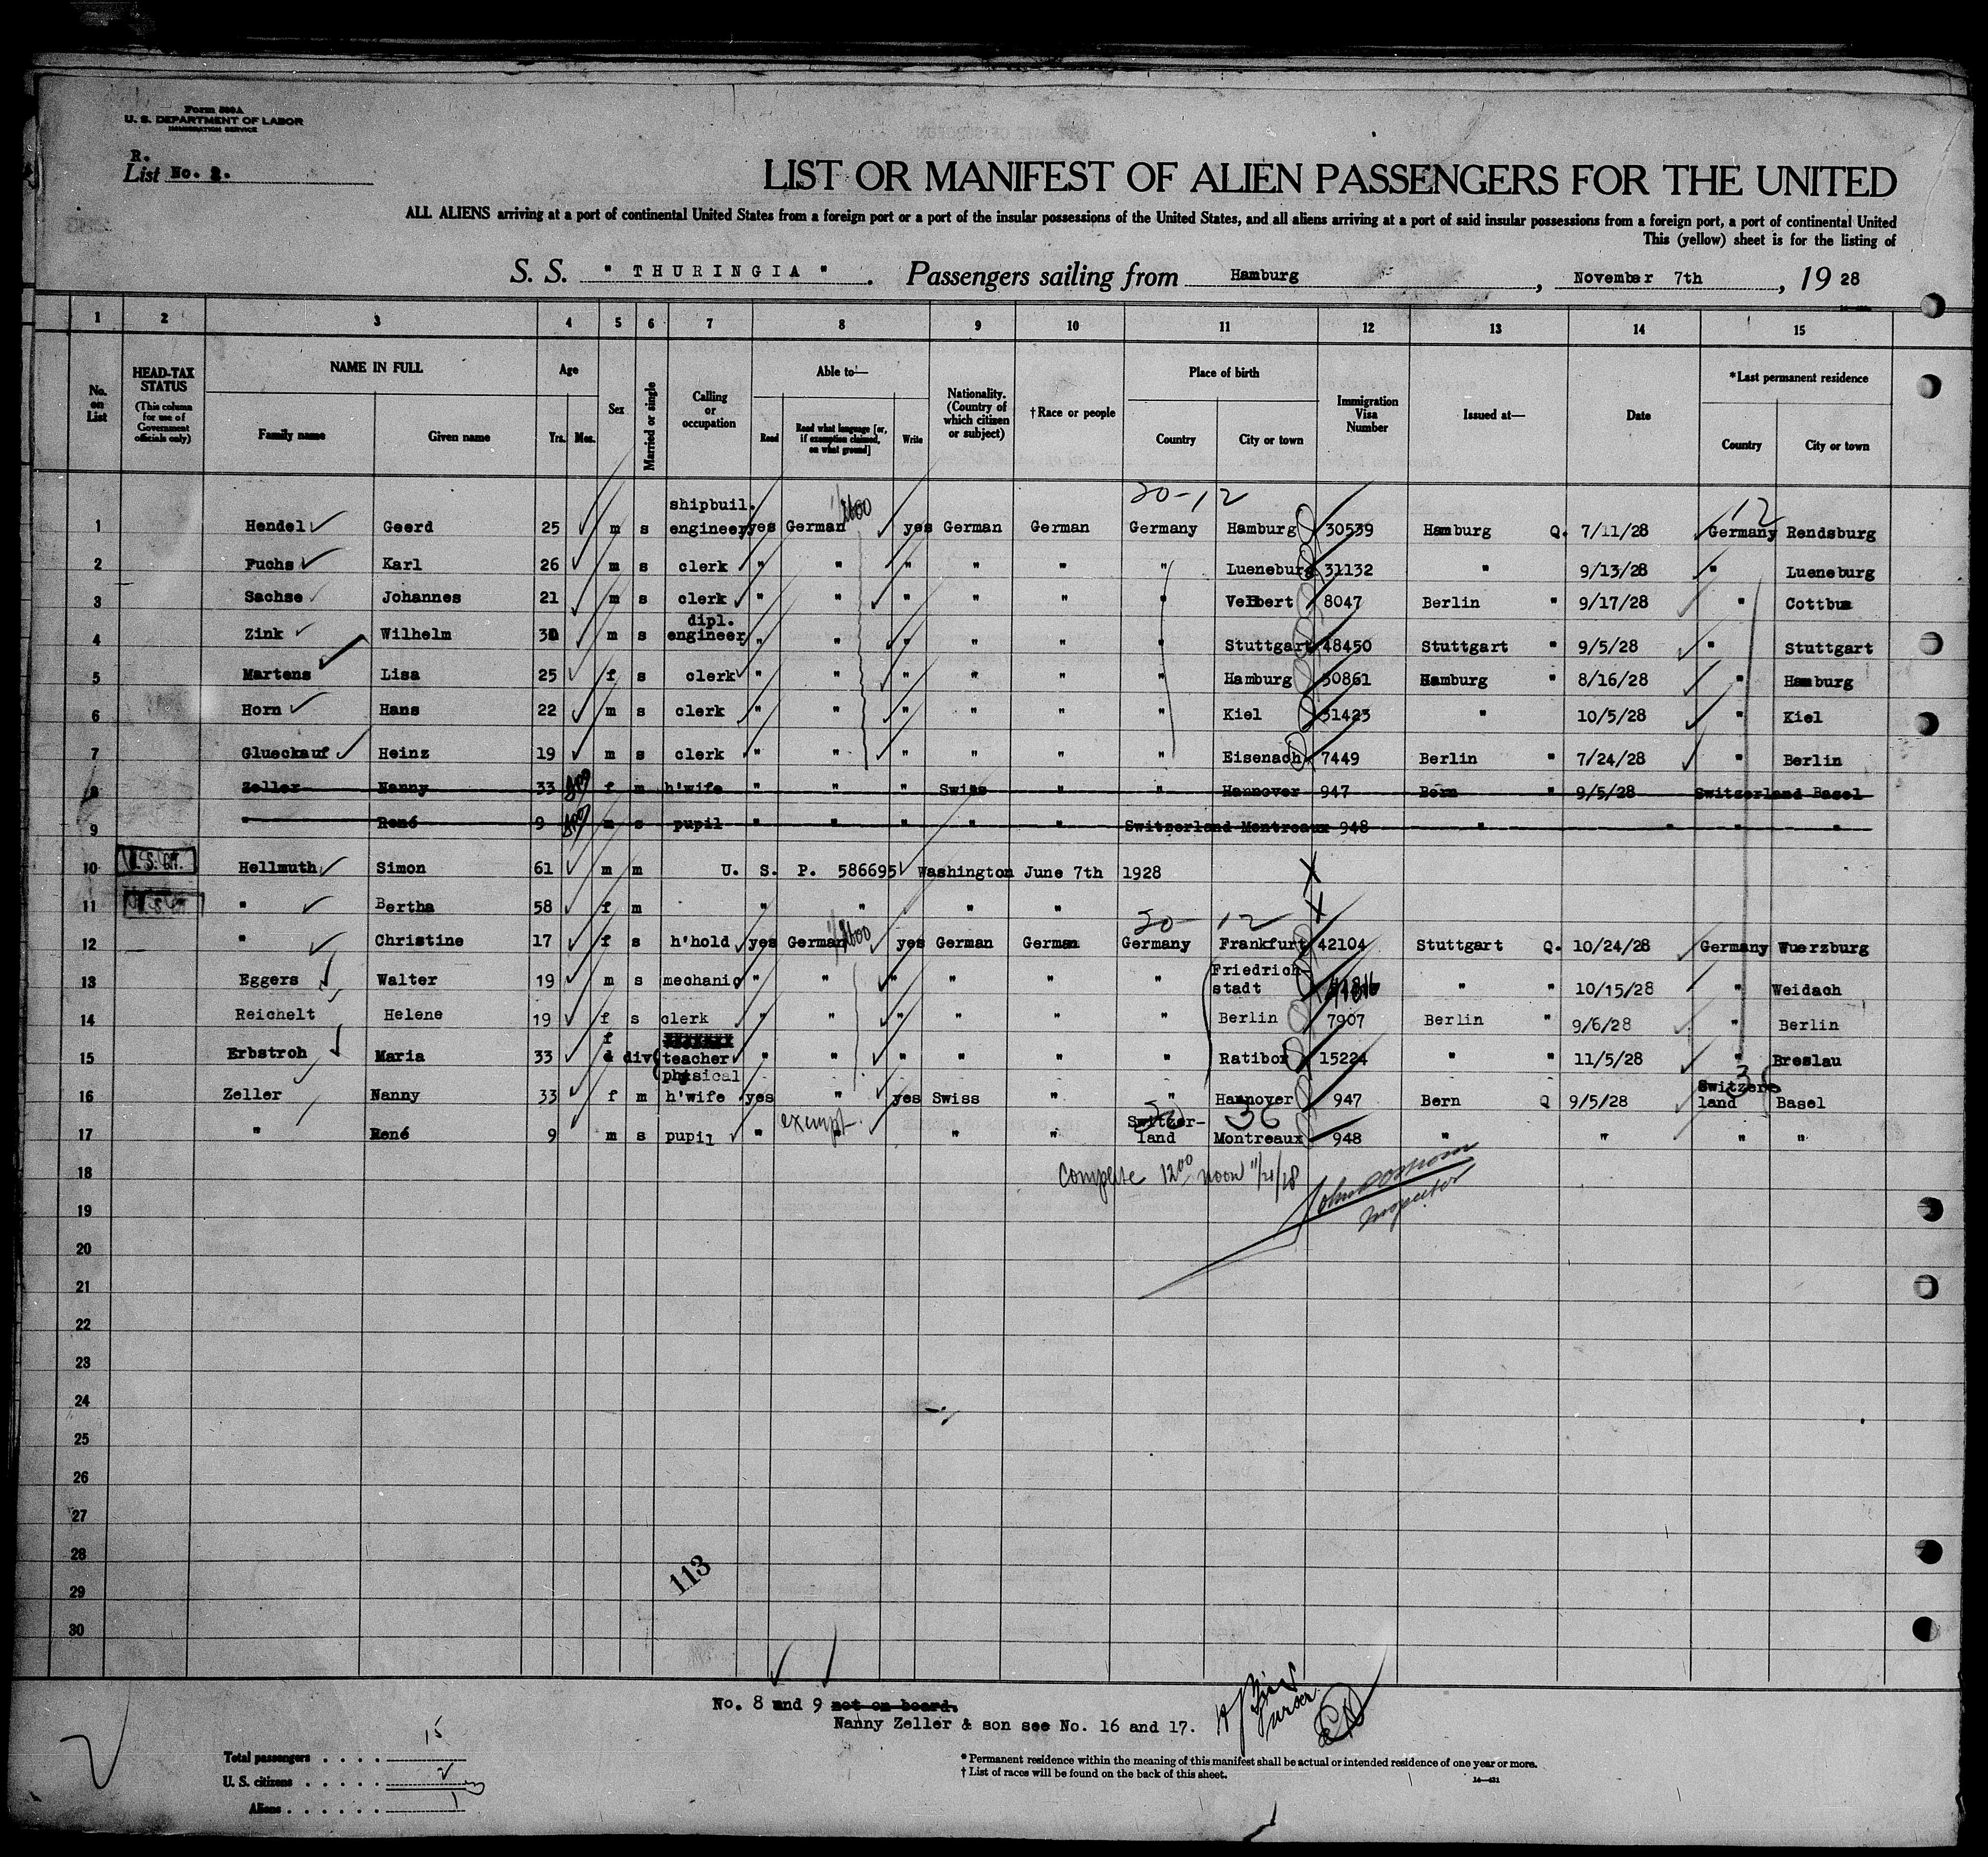 Form 500A
U. S. DEPARTMENT OF LABOR
IMMIGRATION SERVICE
R.
List No. 2.
LIST OR MANIFEST OF ALIEN PASSENGERS FOR THE UNITED
ALL ALIENS arriving at a port of continental United States from a foreign port or a port of the insular possessions of the United States, and all aliens arriving at a port of said insular possessions from a foreign port, a port of continental United
This (yellow) sheet is for the listing of
S. S. " THURINGIA ". Passengers sailing from Hamburg, November 7th, 1928
1 2 3 4 5 6 7 8 9 10 11 12 13 14 15
No. on List
HEAD-TAX STATUS (This column for use of Government officials only)
NAME IN FULL Family name Given name
Age Yrs. Mos.
Sex
Married or single
Calling or occupation
Able to— Read Read what language [or, if exemption claimed, on what ground] Write
Nationality. (Country of which citizen or subject)
†Race or people
Place of birth Country City or town
Immigration Visa Number
Issued at—
Date
*Last permanent residence Country City or town
20-12 12
1 Hendel Geerd 25 m s shipbuil. engineer yes German yes German German Germany Hamburg 30539 Hamburg Q. 7/11/28 Germany Rendsburg
2 Fuchs Karl 26 m s clerk " " " " " " Lueneburg 31132 " 9/13/28 " Lueneburg
3 Sachse Johannes 21 m s clerk " " " " " " Velbert 8047 Berlin " 9/17/28 " Cottbus
4 Zink Wilhelm 30 m s dipl. engineer " " " " " " Stuttgart 48450 Stuttgart " 9/5/28 " Stuttgart
5 Martens Lisa 25 f s clerk " " " " " " Hamburg 30861 Hamburg " 8/16/28 " Hamburg
6 Horn Hans 22 m s clerk " " " " " " Kiel 31423 " 10/5/28 " Kiel
7 Glueckauf Heinz 19 m s clerk " " " " " " Eisenach 7449 Berlin " 7/24/28 " Berlin
8 Zeller Nanny 33 f m h'wife " " " Swiss " " Hannover 947 Bern " 9/5/28 Switzerland Basel
9 " René 9 m s pupil " " " " " Switzerland Montreaux 948 " " " "
10 Hellmuth Simon 61 m m U. S. P. 586695 Washington June 7th 1928 X
11 " Bertha 58 f m " " " " X
20- 12
12 " Christine 17 f s h'hold yes German yes German German Germany Frankfurt 42104 Stuttgart Q. 10/24/28 Germany Wuerzburg
13 Eggers Walter 19 m s mechanic " " " " " " Friedrich stadt " " 10/15/28 " Weidach
14 Reichelt Helene 19 f s clerk " " " " " " Berlin 7907 Berlin " 9/6/28 " Berlin
15 Erbstroh Maria 33 f div teacher physical " " " " " " Ratibor 15224 " " 11/5/28 " Breslau
16 Zeller Nanny 33 f m h'wife yes " yes Swiss " " Hannover 947 Bern Q 9/5/28 Switzerland Basel
17 " René 9 m s pupil " exempt " " " Switzer-land Montreaux 948 " " " "
36 3
18 Complete 12 00 noon 11/21/28
19 Inspector
20
21
22
23
24
25
26
27
28
29
30
113
No. 8 and 9 not on board.
Nanny Zeller & son see No. 16 and 17.
Purser
Total passengers . . . . 15
U. S. citizens . . . . . 2
Aliens . . . . . . 13
* Permanent residence within the meaning of this manifest shall be actual or intended residence of one year or more.
† List of races will be found on the back of this sheet.
14—421